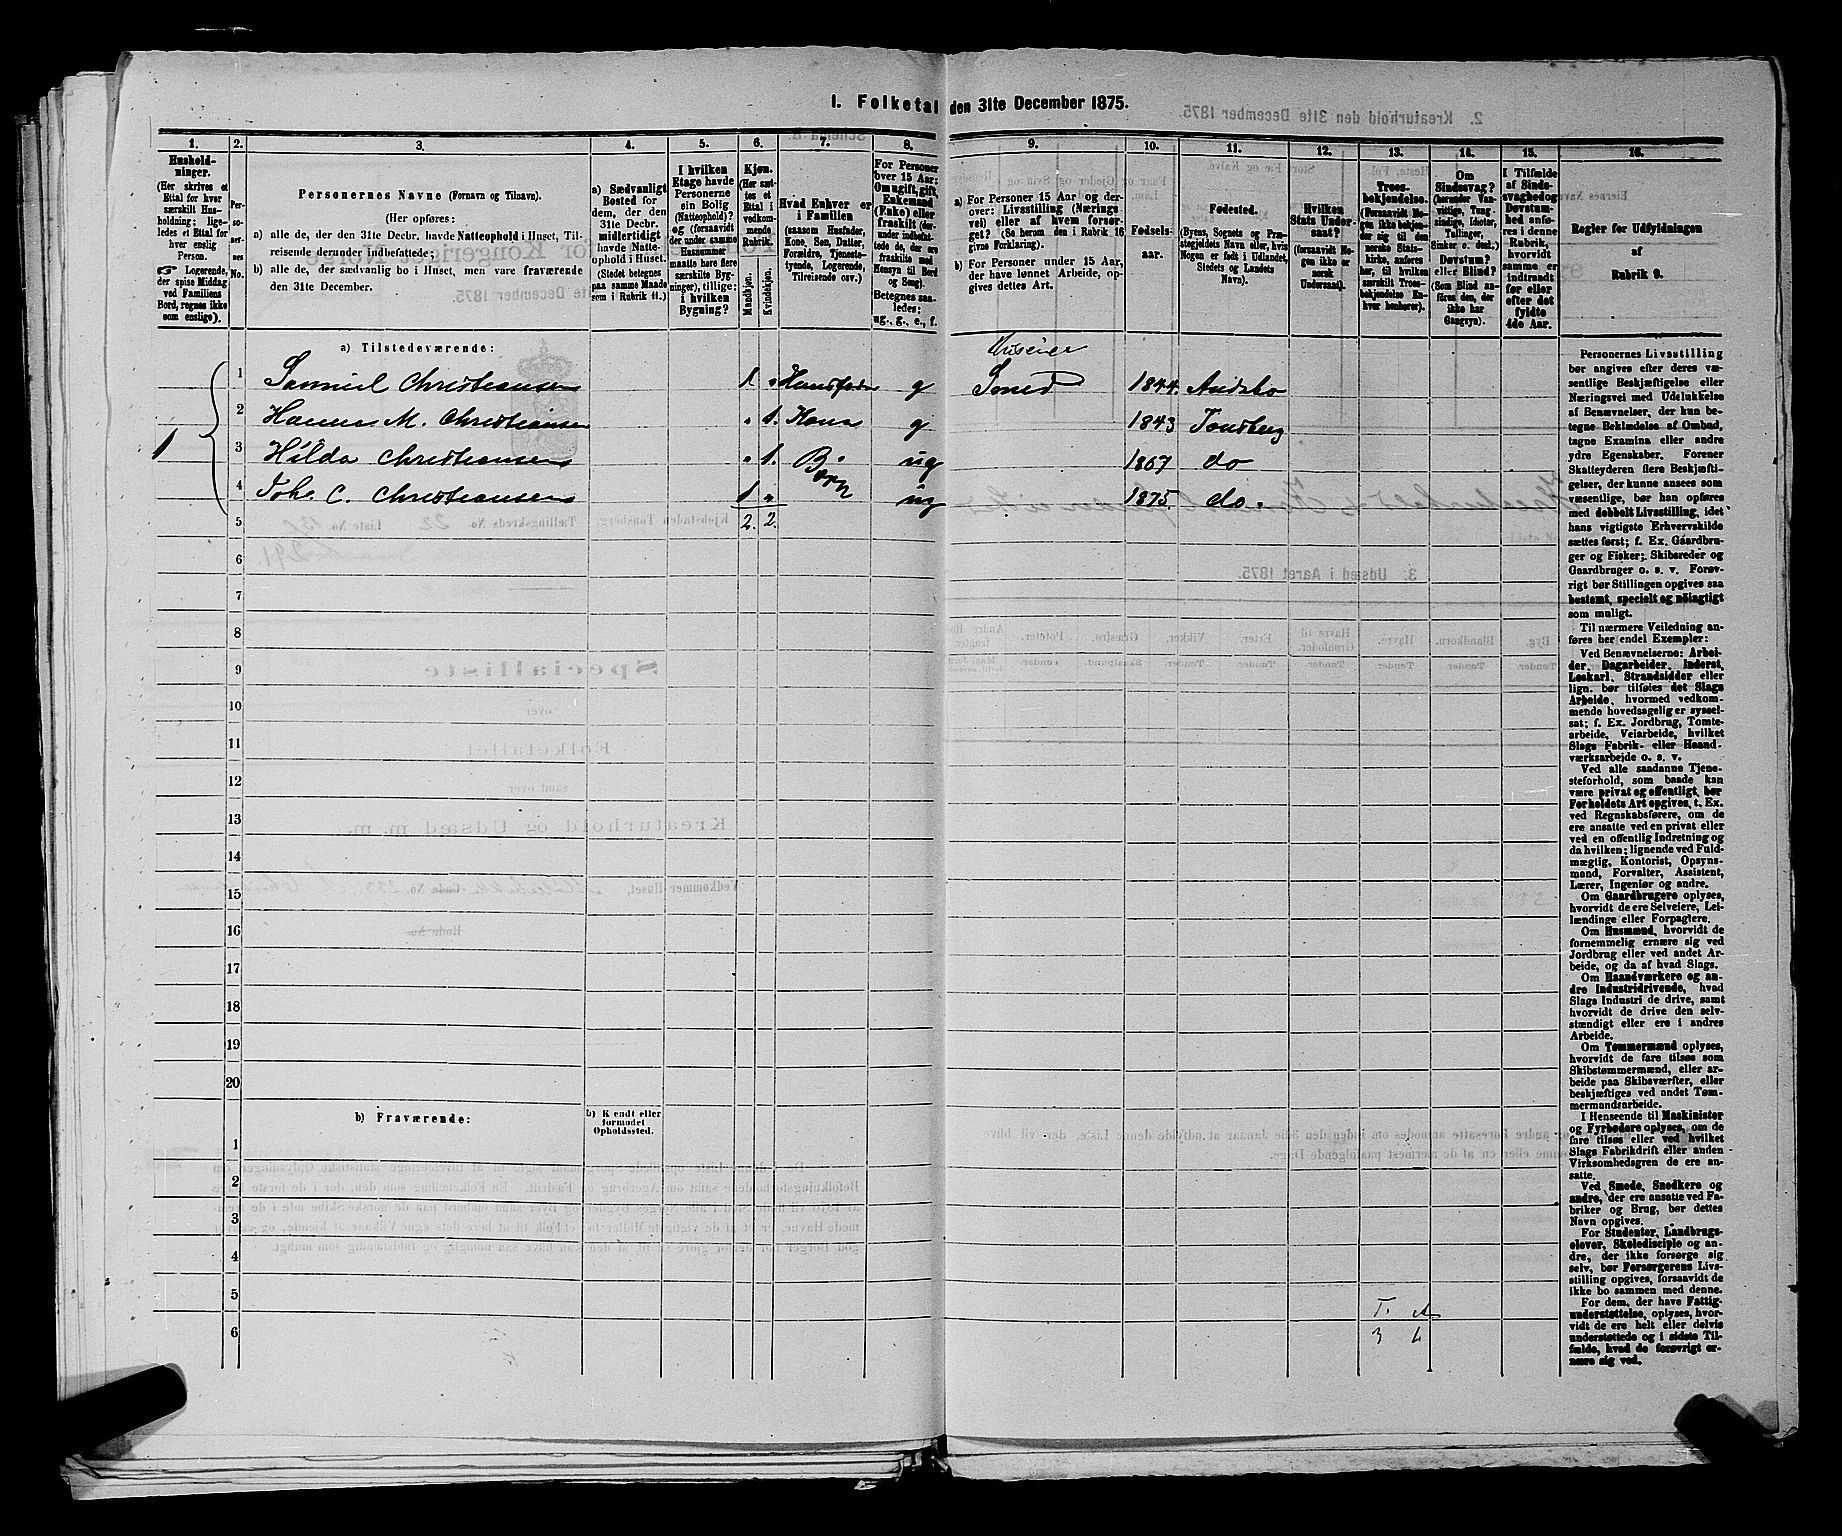 I. Folketal den 31te December 1875.
1. 2. 3. 4. 5. 6. 7. 8. 9. 10. 11. 12. 13. 14. 15. 16.
Husholdninger.
(Her skrives et Ettal for hver særskilt Husholdning; ligeledes et Ettal for hver enslig Person.
☞ Logerende, der spise Middag ved Familiens Bord, regnes ikke som enslige).
Personernes No.
Personernes Navne (Fornavn og Tilnavn).
(Her opføres:
a) alle de, der den 31te Decbr. havde Natteophold i Huset, Tilreisende derunder indbefattede;
b) alle de, der sædvanlig bo i Huset, men vare fraværende den 31te December.
a) Sædvanligt Bosted for dem, der den 31te Decbr. midlertidigt havde Natteophold i Huset.
(Stedet betegnes paa samme Maade som i Rubrik 11.)
I hvilken Etage havde Personerne sin Bolig (Natteophold)? og (forsaavidt der under samme Husnummer maatte høre flere særskilte Bygninger), tillige: i hvilken Bygning?
Kjøn.
(Her sættes et Ettal i vedkommende Rubrik.
Mandkjøn. Kvindekjøn.
Hvad Enhver er i Familien
(saasom Husfader, Kone, Søn, Datter, Forældre, Tjenestetyende, Logerende, Tilreisende osv.)
For Personer over 15 Aar: Om ugift, gift, Enkemand (Enke) eller fraskilt (derunder indbefattede de, der ere fraskilte med Hensyn til Bord og Seng).
Betegnes saaledes:
ug., g., e., f.
a) For Personer 15 Aar og derover: Livsstilling (Næringsvei) eller af hvem forsørget? (Se herom den i Rubrik 16 givne Forklaring).
b) For Personer under 15 Aar, der have lønnet Arbeide, opgives dettes Art.
Fødselsaar.
Fødested.
(Byens, Sognets og Præstegjeldets Navn eller, hvis Nogen er født i Udlandet, Stedets og Landets Navn).
Hvilken Stats Undersaat?
(forsaavidt Nogen ikke er norsk Undersaat).
Troesbekjendelse.
(Forsaavidt Nogen ikke bekjender sig til den norske Statskirke, anføres her, til hvilken særskilt Troesbekjendelse Enhver henhører).
Om Sindssvag?
(herunder Vanvittige, Tungsindige, Idioter, Tullinger, Sinker o. desl.)
Døvstum? eller Blind?
(Som Blind anføres den, der ikke har Gangsyn).
I Tilfælde af Sindssvaghed og Døvstumhed anføres i denne Rubrik, hvorvidt samme er indtraadt før eller efter det fyldte 4de Aar.
Regler for Udfyldningen
af
Rubrik 9.
a) Tilstedeværende:
Huseier
1 Samuel Christiansen 1 " Husfader g Smed 1844.
2 Hanna M. Christiansen " 1. Kone g 1843 Tønsberg
1 3 Hilda Christiansen " 1. Børn ug 1867 do
4 Joh. C. Christiansen 1 " ug 1875. do.
5 2. 2.
6
7
8
9
10
11
12
13
14
15
16
17
18
19
20
b) Fraværende: b) Kjendt eller formodet Opholdssted.
1
2
3
4
5
6
T. A
3 6
Personernes Livsstilling
bør angives efter deres væ-
sentlige Beskjæftigelse eller
Næringsvei med Udelukkelse
af Benævnelser, der kun be-
tegne Beklædelse af Ombud,
tagne Examina eller andre
ydre Egenskaber. Forener
Skatteyderen flere Beskjæfti-
gelser, der kunne ansees som
væsentlige, bør han opføres
med dobbelt Livsstilling, idet
hans vigtigste Erhvervskilde
sættes først; f. Ex. Gaardbru-
ger og Fisker; Skibsreder og
Gaardbruger o. s. v. Forøv-
rigt bør Stillingen opgives saa
bestemt, specielt og nöiagtigt
som muligt.
Til nærmere Veiledning an-
føres her endel Exempler:
Ved Benævnelserne: Arbei-
der, Dagarbeider, Inderst,
Løskarl, Strandsidder eller
lign. bør tilføtes det Slags
Arbeide, hvormed vedkom-
mende hovedsagelig er syssel-
sat; f. Ex. Jordbrug, Tomte-
arbeide, Veiarbeide, hvilket
Slags Fabrik- eller Haand-
værksarbeide o. s. v.
Ved alle saadanne Tjene-
steforhold, som baade kan
være privat og offentligt, bør
Forholdets Art opgives, t. Ex.
ved Regnskabsførere, om de
ere ansatte ved en privat eller
ved en offentlig Indretning og
da hvilken; lignende ved Fuld-
mægtig, Kontorist, Opsyns-
mand, Forvalter, Assistent,
Lærer, Ingeniør og andre.
Om Gaardbrugere oplyses,
hvorvidt de ere Selveiere, Lei-
lændinge eller Forpagtere.
Om Husmænd, hvorvidt de
fornemmelig ernære sig ved
Jordbrug eller ved andet Ar-
beide, og da af hvad Slags.
Om Haandværkere og an-
dre Industridrivende, hvad
Slags Industri de drive, samt
hvorvidt de drive den selv-
stændigt eller ere i andres
Arbeide.
Om Tømmermænd oplyses,
hvorvidt de fare tilsøs som
Skibstømmermænd, eller ar-
beide paa Skibsværfter, eller
beskjæftiges ved andet Tøm-
mermandsarbeide.
I Henseende til Maskinister
og Fyrbødere oplyses, om de
fare tilsøs eller ved hvilket
Slags Fabrikdrift eller anden
Virksomhedsgren de ere an-
satte.
Ved Smede, Snedkere og
andre, der ere ansatte ved Fa-
briker og Brug, bør dettes
Navn opgives.
For Studenter, Landbrugs-
elever, Skoledisciple og an-
dre, der ikke forsørge sig
selv, bør Forsørgerens Livs-
stilling opgives, forsaavidt de
ikke bo sammen med denne.
For dem, der have Fattig-
understøttelse, oplyses, hvor-
vidt de ere helt eller delvis
understøttede og i sidste Til-
fælde, hvad de forøvrigt er-
nære sig ved.